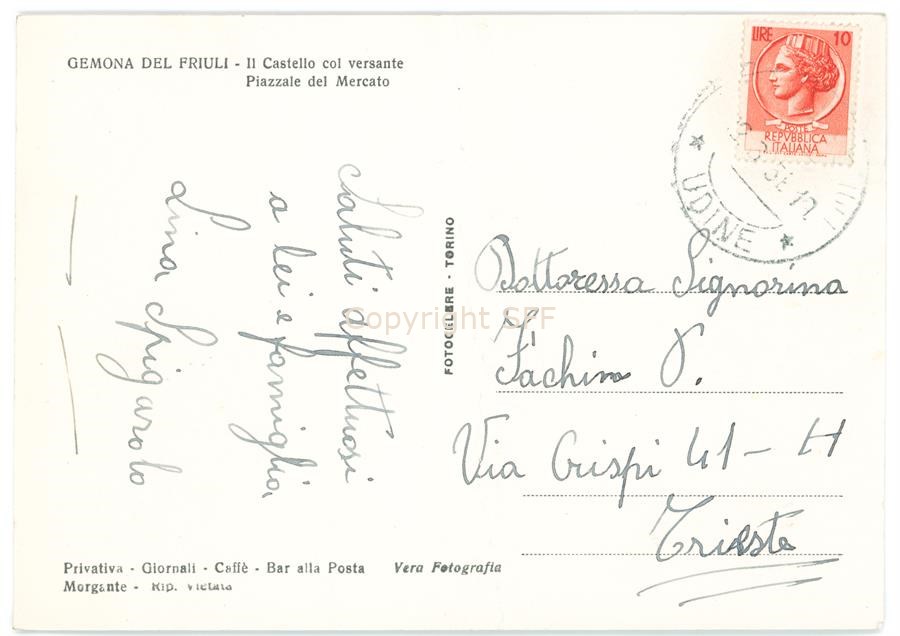 GEMONA DEL FRIULI - Il Castello col versante
Piazzale del Mercato
Saluti affettuosi
a lei e famiglia,
Lina Spigarolo
FOTOCELERE - TORINO
LIRE 10
POSTE
REPVBBLICA
ITALIANA
* UDINE *
Dottoressa Signorina
Fachin
Via Crispi 41 - H
Trieste
Privativa - Giornali - Caffè - Bar alla Posta
Morgante - Rip. Vietata
Vera Fotografia
Copyright SFF